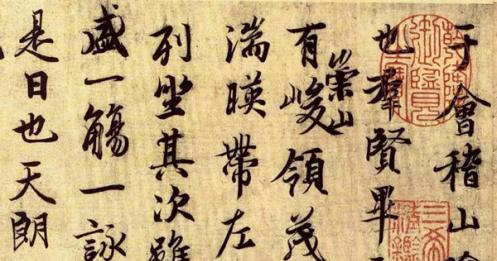 于會稽山
也羣賢畢
有崇山峻領茂
湍暎帶左
列坐其次雖
盛一觴一詠
是日也天朗